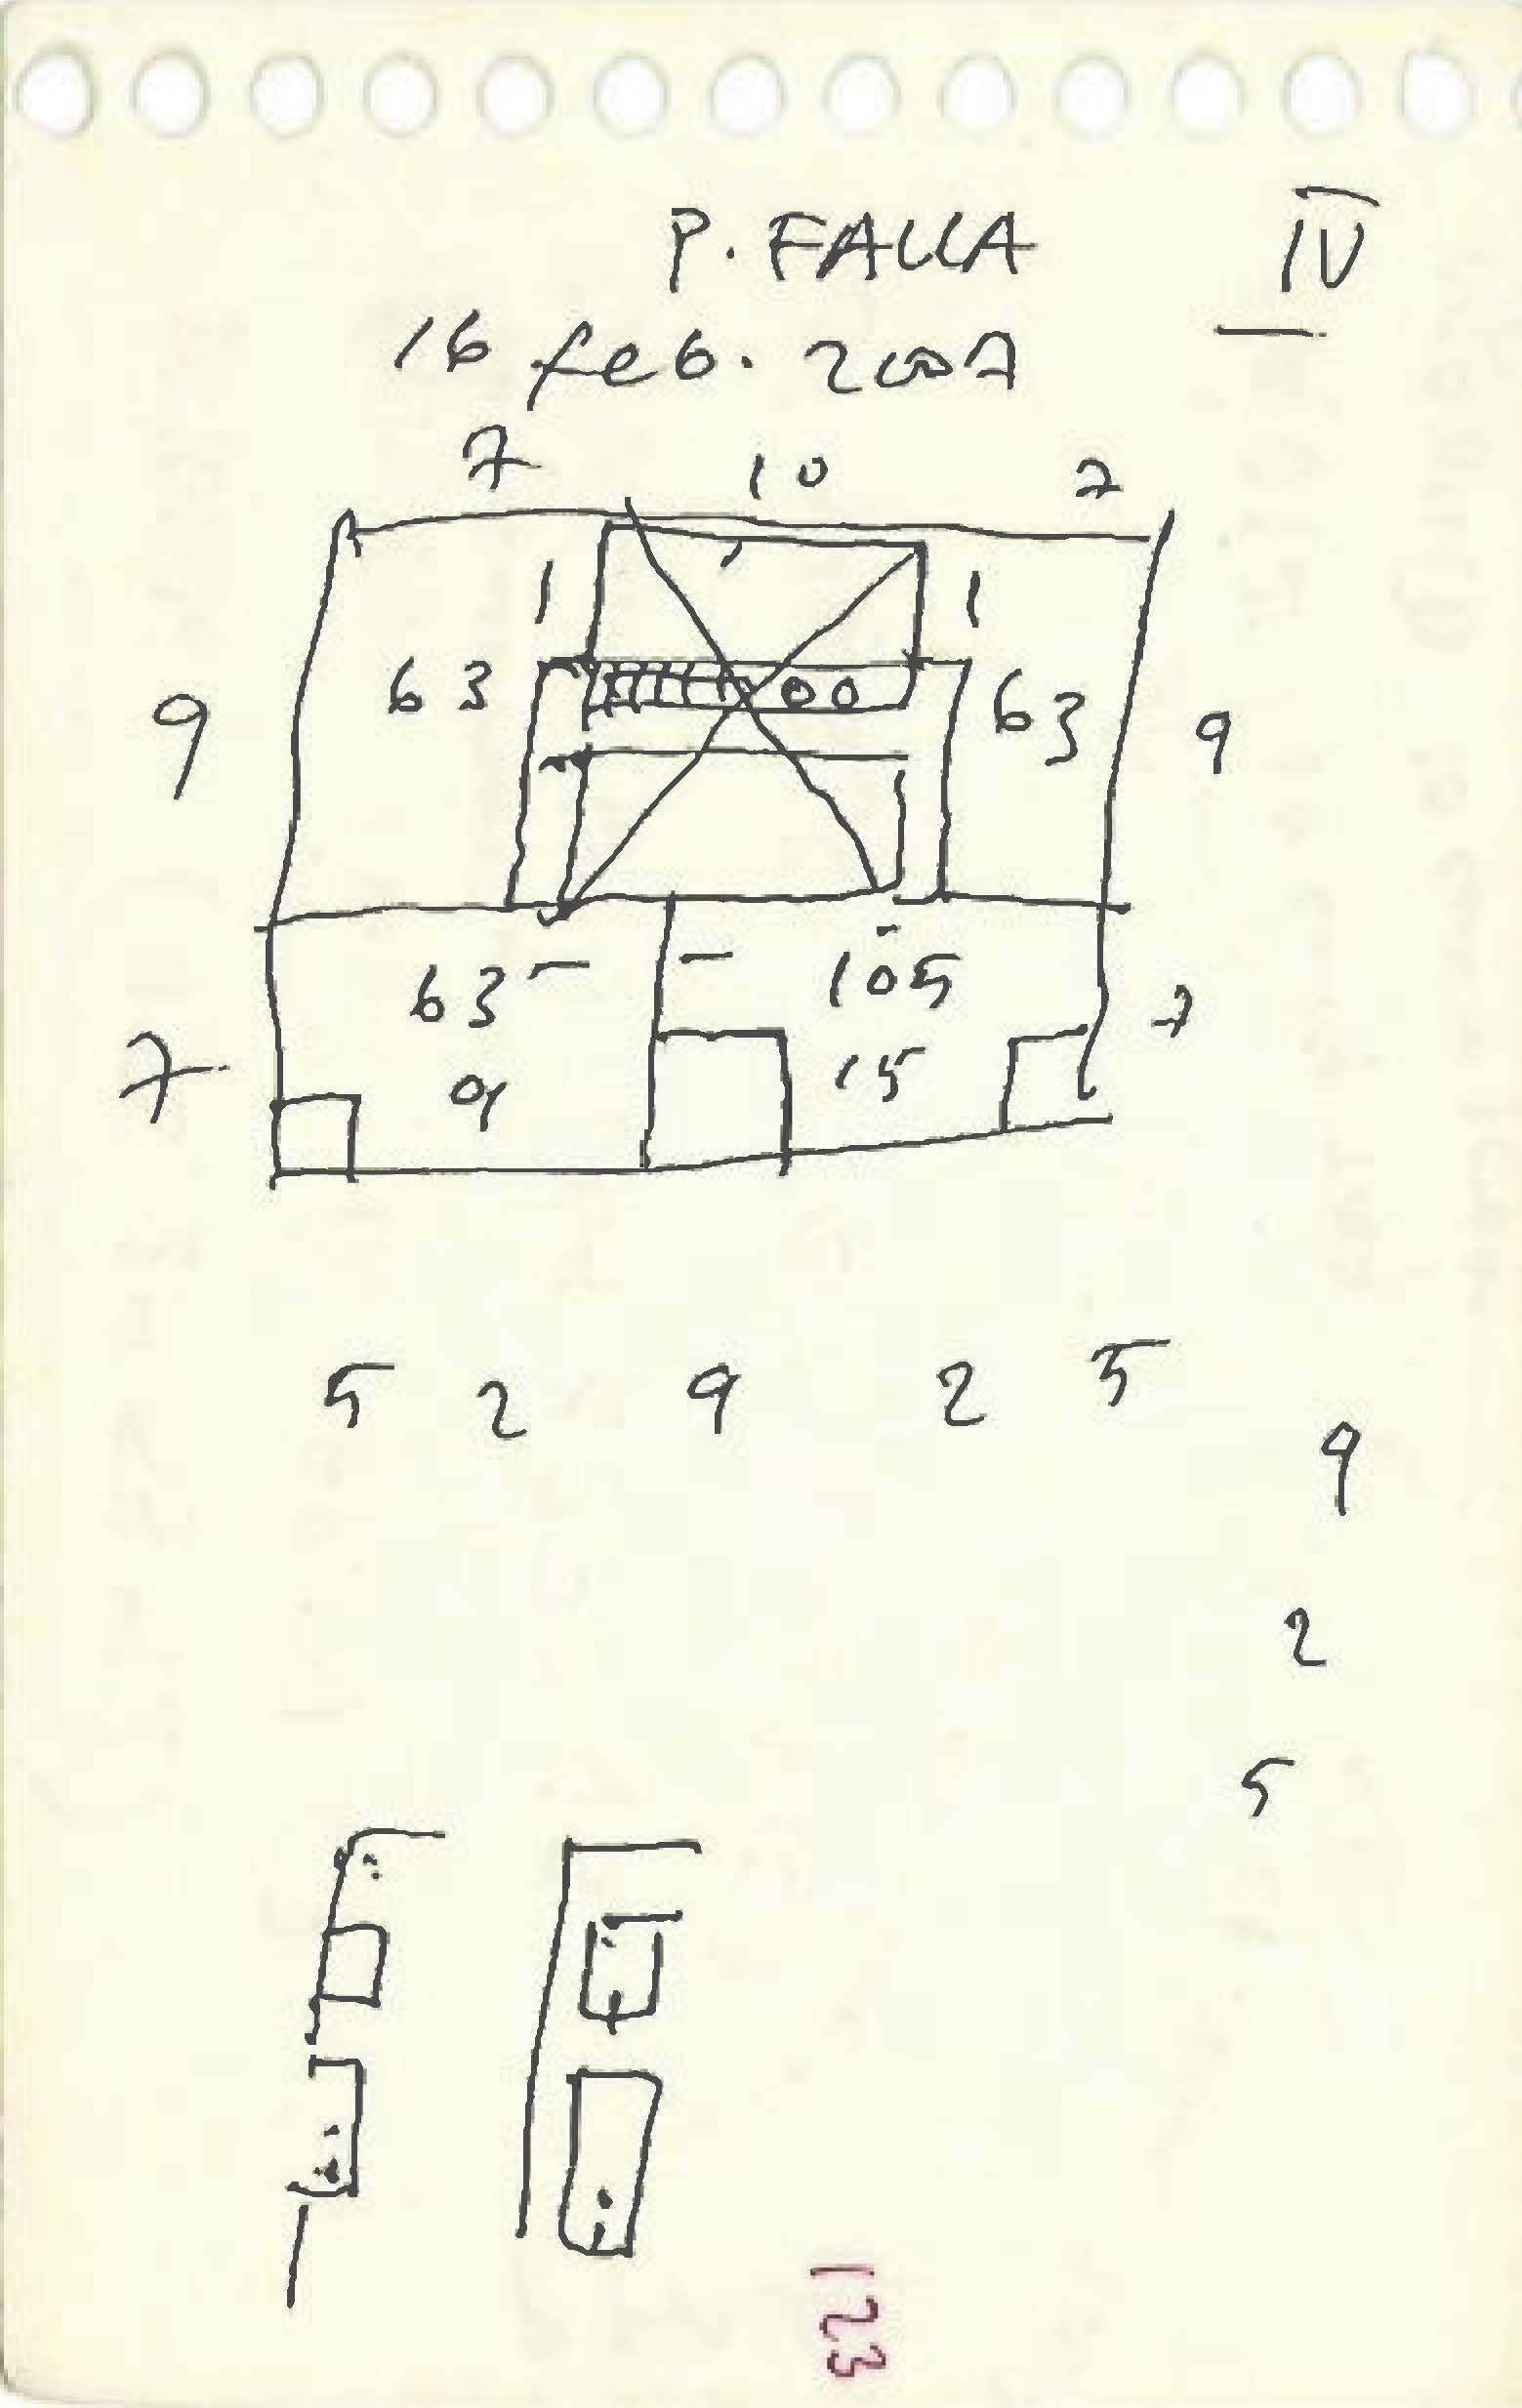 P. FALLA IV
16 feb. 2007
7 10 7
1 1
9 63 63 9
63 105
7 9 15 7
5 2 9 2 5
9
2
5
123